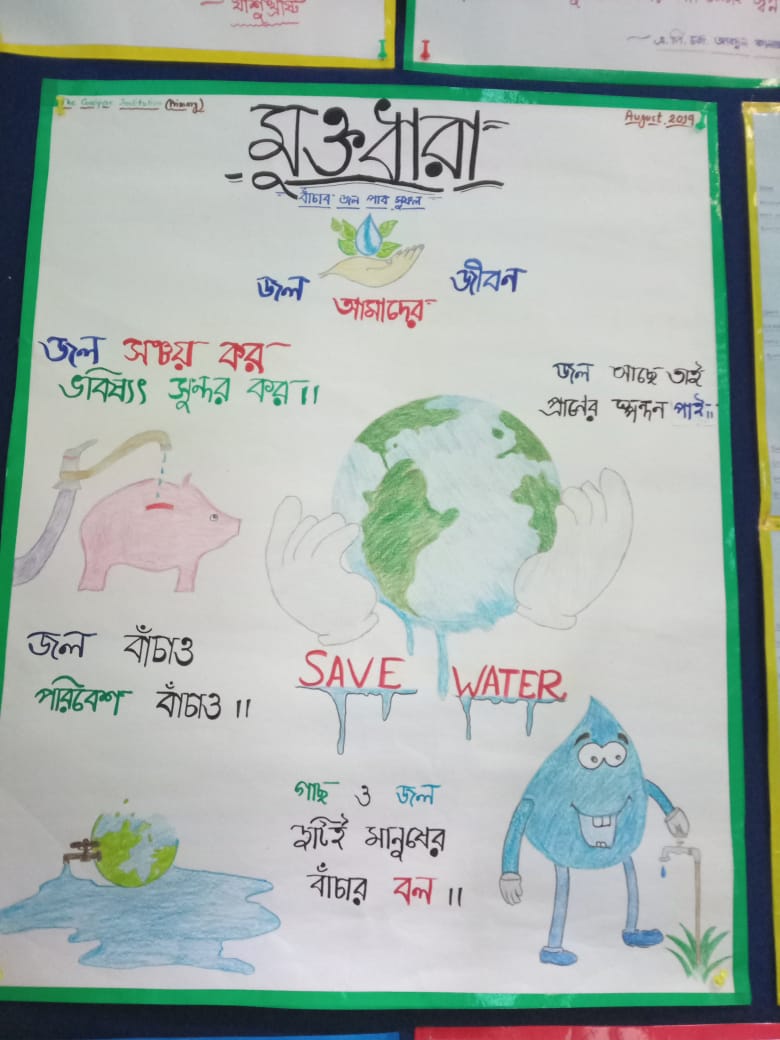 যীশুখ্রীষ্ট
এ. পি. জে. আবদুল কালাম
The Institution (Primary)
August. 2019
মুক্তধারা
বাঁচাব জল পাব সুফল
জল আমাদের জীবন
জল সঞ্চয় কর
ভবিষ্যৎ সুন্দর কর।।
জল আছে তাই
প্রানের স্পন্দন পাই।।
জল বাঁচাও
পরিবেশ বাঁচাও।।
SAVE WATER
গাছ ও জল
দুটিই মানুষের
বাঁচার বল।।